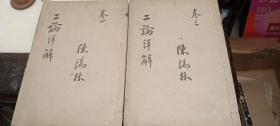 卷三
二論詳解
陳滿林
卷四
二論詳解
陳滿林